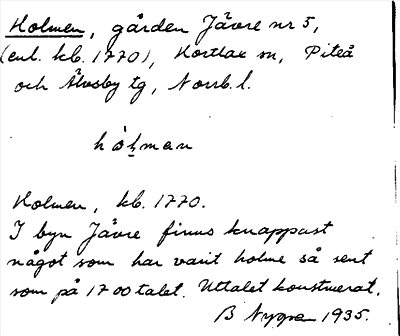 Holmen, gården Jävre nr 5,
(enl. kb. 1770), Hortlax sn, Piteå
och Älvsby tg, Norrb. l.
hólman
Holmen, kb. 1770.
I byn Jävre finns knappast
något som har varit holme så sent
som på 1700talet. Uttalet konstruerat.
B Nygren 1935.